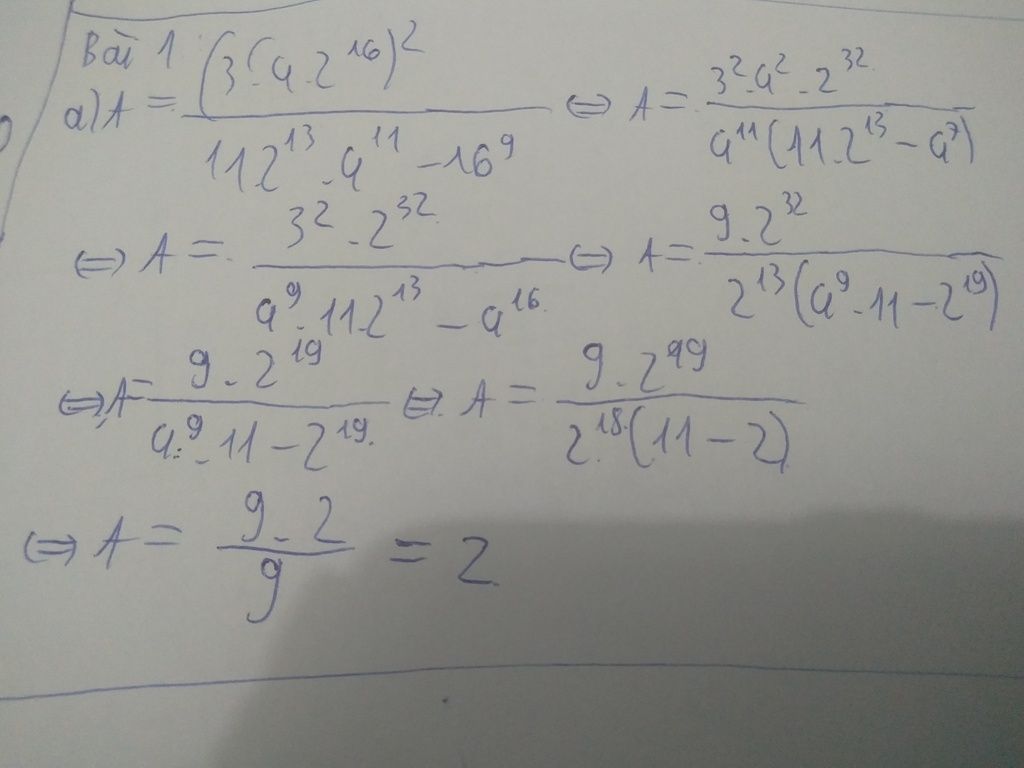 Bài 1
a) A = (3 . 4 . 2^16)^2 / (11.2^13 . 4^11 - 16^9) ⇔ A = (3^2 . 4^2 . 2^32) / (4^11 (11.2^13 - 4^7))
⇔ A = (3^2 . 2^32) / (4^9 . 11.2^13 - 4^16) ⇔ A = (9 . 2^32) / (2^13 (4^9 . 11 - 2^19))
⇔ A = (9 . 2^19) / (4^9 . 11 - 2^19) ⇔ A = (9 . 2^19) / (2^18 (11 - 2))
⇔ A = (9 . 2) / 9 = 2